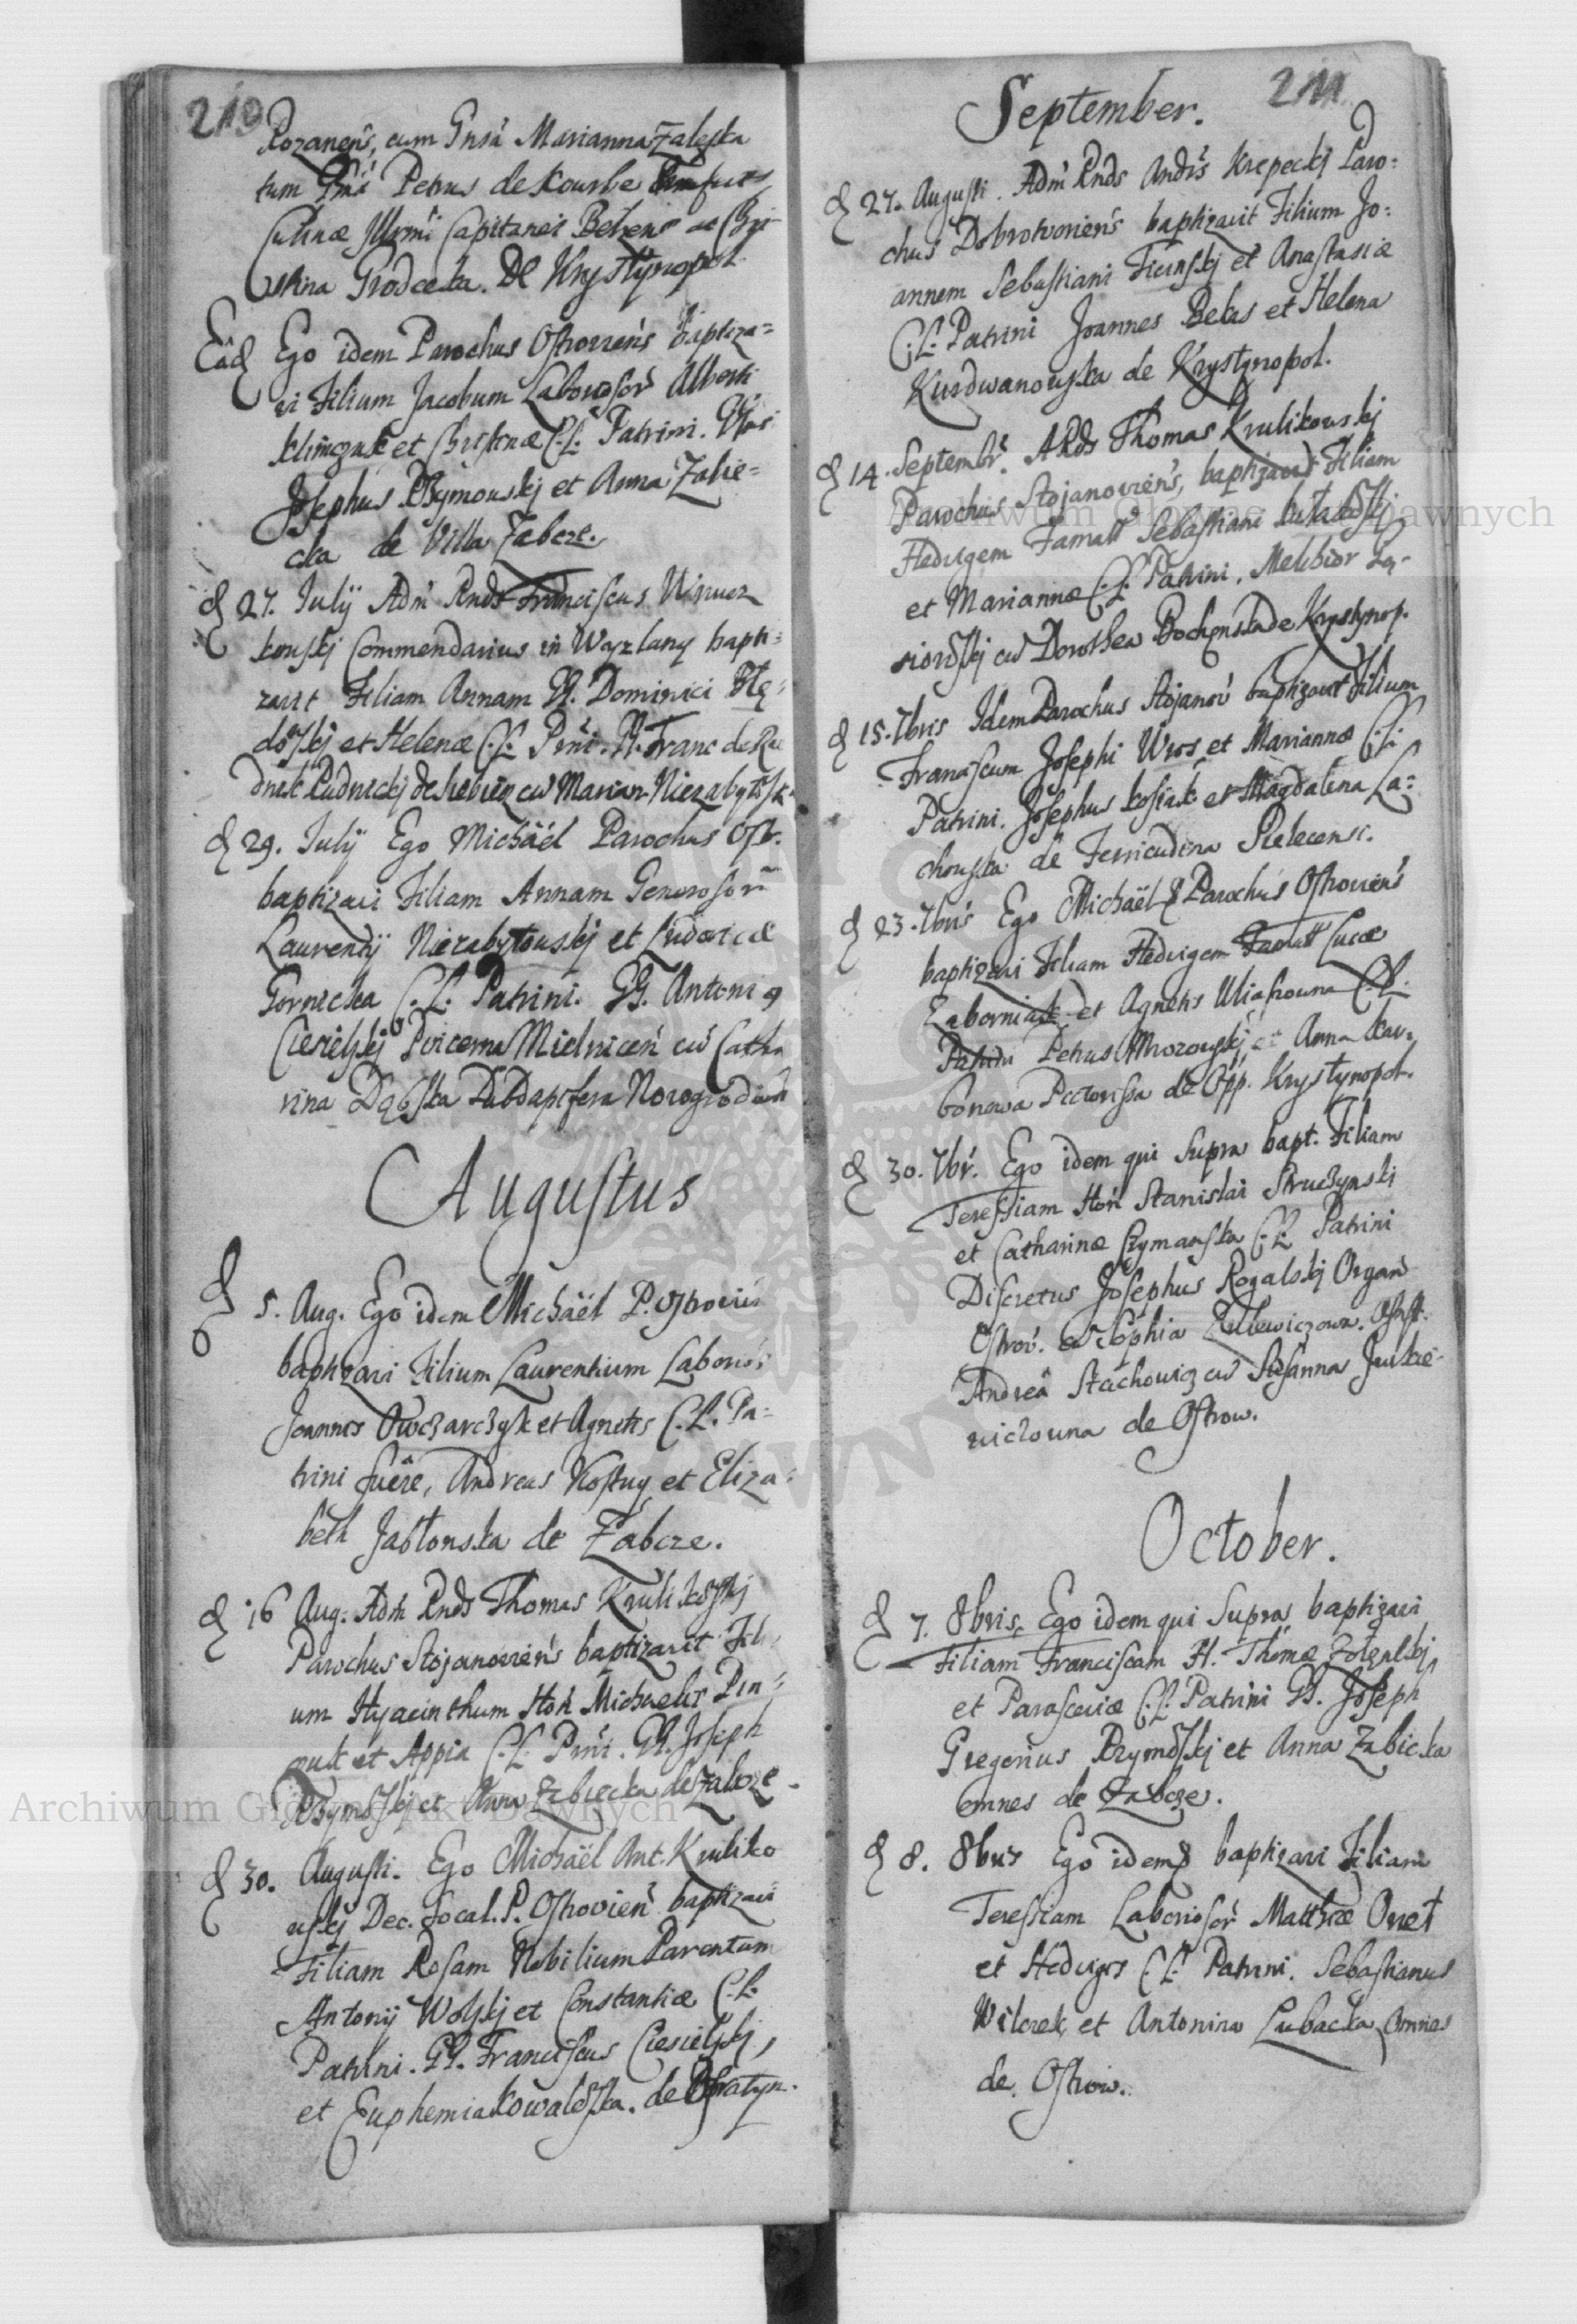 210
Rozanens, cum Gnsa Marianna Zaleska
tum Pni Petrus de Kourbe
Culinæ Illrmi Capitanei Belzens ac Chri-
stina Grodecka. De Krystynopol
Eâd Ego idem Parochus Ostroviens baptiza=
vi Filium Jacobum Laborosor Alberti
Klimczuk et Christinæ C.L. Patrini.
Josephus Rzymouskj et Anna Zabie=
cka de Villa Zabcze.
d 27. Julÿ Adm Rnds Franciscus
kouskj Commendarius in Waÿzlany bapti=
zavit Filiam Annam G. Dominici
et Helenæ C.L. Pni. G. Franc de Ru
dnik Rudnickj de cu Marian
d 29. Julÿ Ego Michaël Parochus Ostr.
baptizavi Filiam Annam Generosorum
Laurentÿ Niezabytouskj et Ludovicæ
Gornicka C.L. Patrini. GG. Antoni 9
Ciesielskj Pincerna Mielnicen cu Catha
rina Dąbska Subdapifera Novogrodien
Augustus
d 5. Aug. Ego idem Michaël P. Ostrovien
baptizavi Filium Laurentium Laborios
Joannis Owczarczyk et Agnetis C.L. Pa=
trini fuêre, Andreas Kostuy et Eliza=
beth Jabłonska de Zabcze.
d 16 Aug. Adm Rnds Thomas Krulikoskj
Parochus Stojanoviens baptizavit Fili
um Hyacinthum Hon Michaelis Pin=
czuk et Appia C.L. Pni. GG. Joseph
Rzymoskj et Anna Zabiecka de Zabcze.
d 30. Augusti. Ego Michaël Ant. Kruliko
uskj Dec. Focal. P. Ostrovien baptizavi
Filiam Rosam Nobilium Parentum
Antonÿ Wolskj et Constantiæ C.L.
Patrini. GG. Franciscus Ciesielskj,
et Euphemia Kowalska. de Opratyn.
211
September.
d 27. Augusti. Adm Rnds Andrs Krepeckj Paro=
chus Dobrotvoriens baptizavit Filium Jo=
annem Sebastiani Ficinskj et Anastasiæ
C.L. Patrini Joannes Belas et Helena
Kurdwanouska de Krystynopol.
d 14. Septembr. A Rds Thomas Krulikouskj
Parochus Stojanoviens, baptizavit Filiam
Hedvigem Famatt Sebastiani
et Mariannæ C.L. Patrini. Melchior
cu Dorothea Bochenska de Krystynop.
d 15. 7bris Idem Parochus Stojanov baptizavit Filium
Franciscum Josephi Wros et Mariannæ C.L.
Patrini. Josephus Kosiak et Magdalena La=
chouska de Ferricudina Sielecensi.
d 23. 7bris Ego Michaël Parochus Ostroviens
baptizavi Filiam Hedvigem Famatt Lucæ
Zaborniak et Agnetis Uliasiouna C.L.
Patrini Petrus Mrozouskj et Anna Kar=
bonowa Pictorissa de Opp. Krystynopol.
d 30. 7br. Ego idem qui Supra bapt. Filiam
Teressiam Hon Stanislai Struczynski
et Catharinæ Szymanska C.L. Patrini
Discretus Josephus Rogalskj Organ
Ostrov. cu Sophia Zulewiczowa. Assist.
Andrea Stachowicz cu Susanna Juskie-
wiczouna de Ostrow.
October.
d 7. 8bris. Ego idem qui Supra baptizavi
Filiam Franciscam H. Thomæ
et Parasceviæ C.L. Patrini GG. Joseph
Gregorius Rzymoskj et Anna Zabicka
omnes de Zabcze.
d 8. 8bris Ego idem baptizavi Filiam
Teressiam Laboriosor Matthiæ Onet
et Hedvigis C.L. Patrini. Sebastianus
Wilczek et Antonina Lubacka Omnes
de Ostrow.
Archiwum Główne Akt Dawnych
Archiwum Główne Akt Dawnych